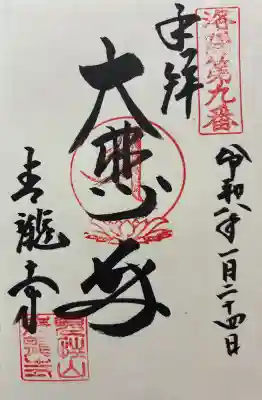 洛陽第九番
奉拝
令和八年一月二十四日
大悲殿
青龍寺